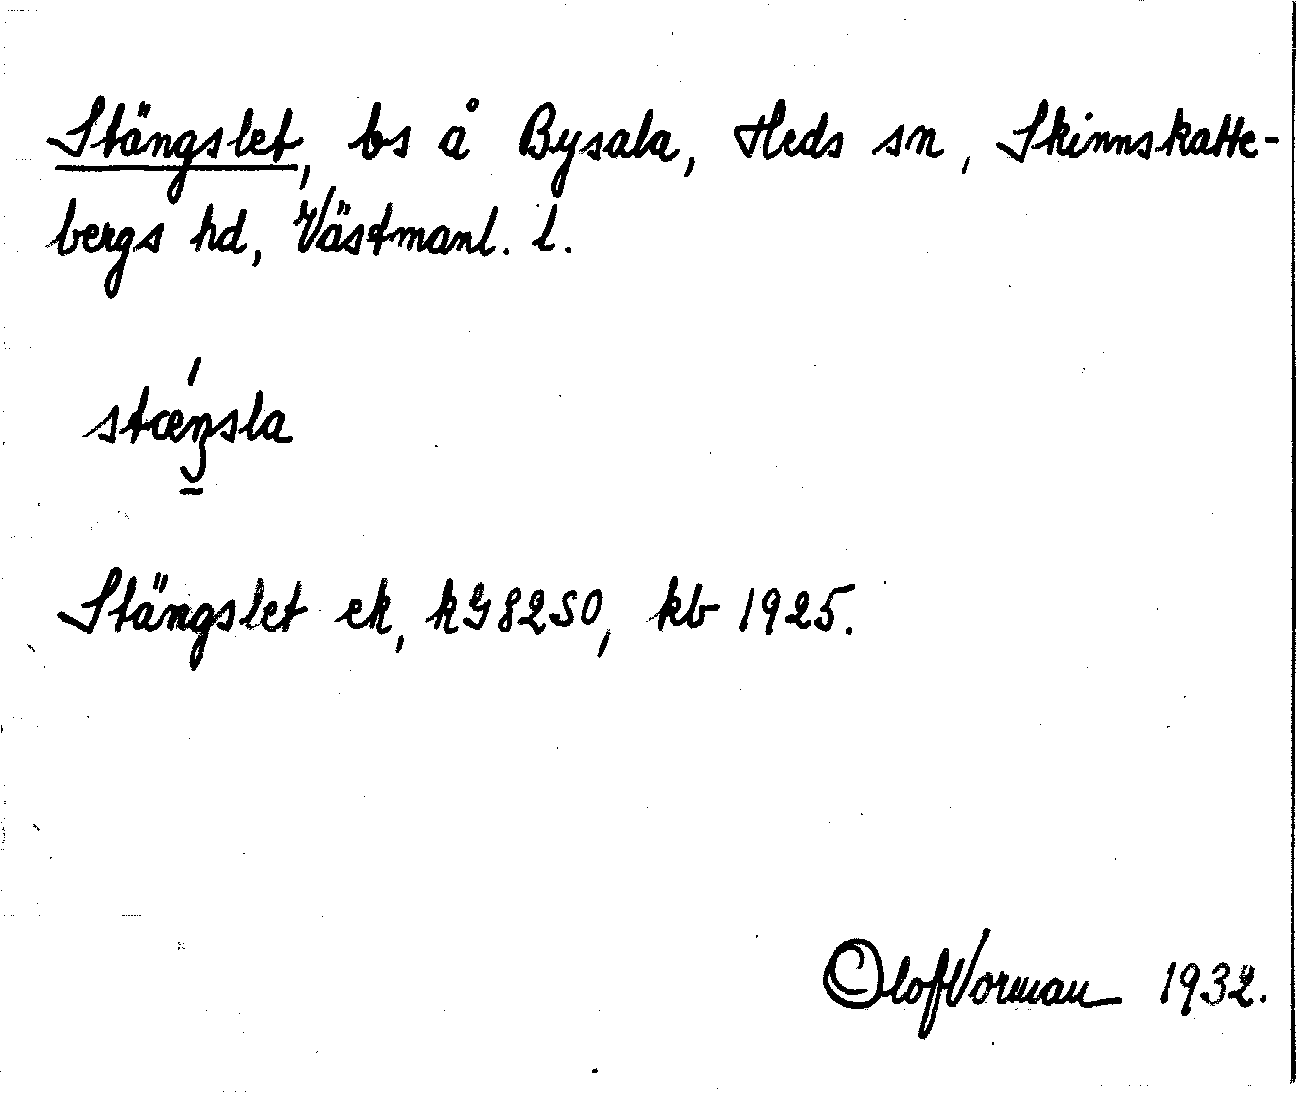 Stängslet, bs å Bysala, Heds sn, Skinnskatte-
bergs hd, Västmanl. l.
stœ́ŋsla
Stängslet ek, kG8250, kb 1925.
Olof Vorman 1932.